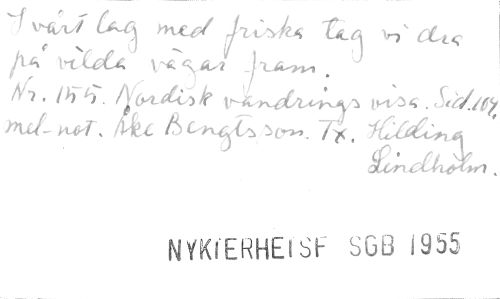 I vårt lag med friska tag vi dra
på vilda vägar fram.
Nr. 155. Nordisk vandrings visa. Sid. 109,
mel-not. Åke Bengtsson. Tx. Hilding
Lindholm.
NYKTERHETSF SGB 1955